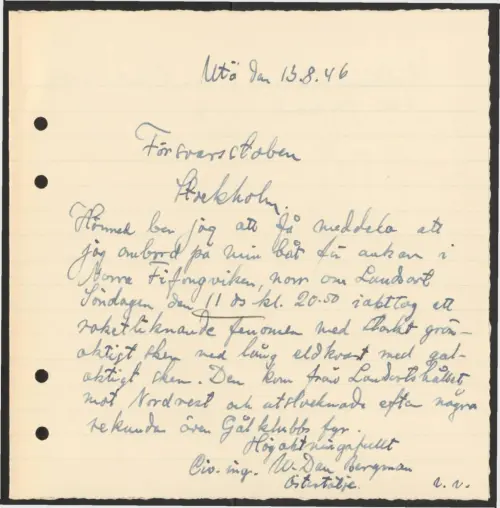 Utö den 13.8.46
Försvarsstaben
Stockholm.
Härmed ber jag att få meddela att
jag ombord på min båt för ankar i
Norra Fifongviken, norr om Landsort
Söndagen den 11 ds kl. 20.50 iakttag ett
raketliknande fenomen med starkt grön-
aktigt sken med lång eldkvast med gul-
aktigt sken. Den kom från Landsortshållet
mot Nordväst och utslocknade efter några
sekunder över Gålklubbs fyr.
Högaktningsfullt
Civ. ing. W. Dan Bergman